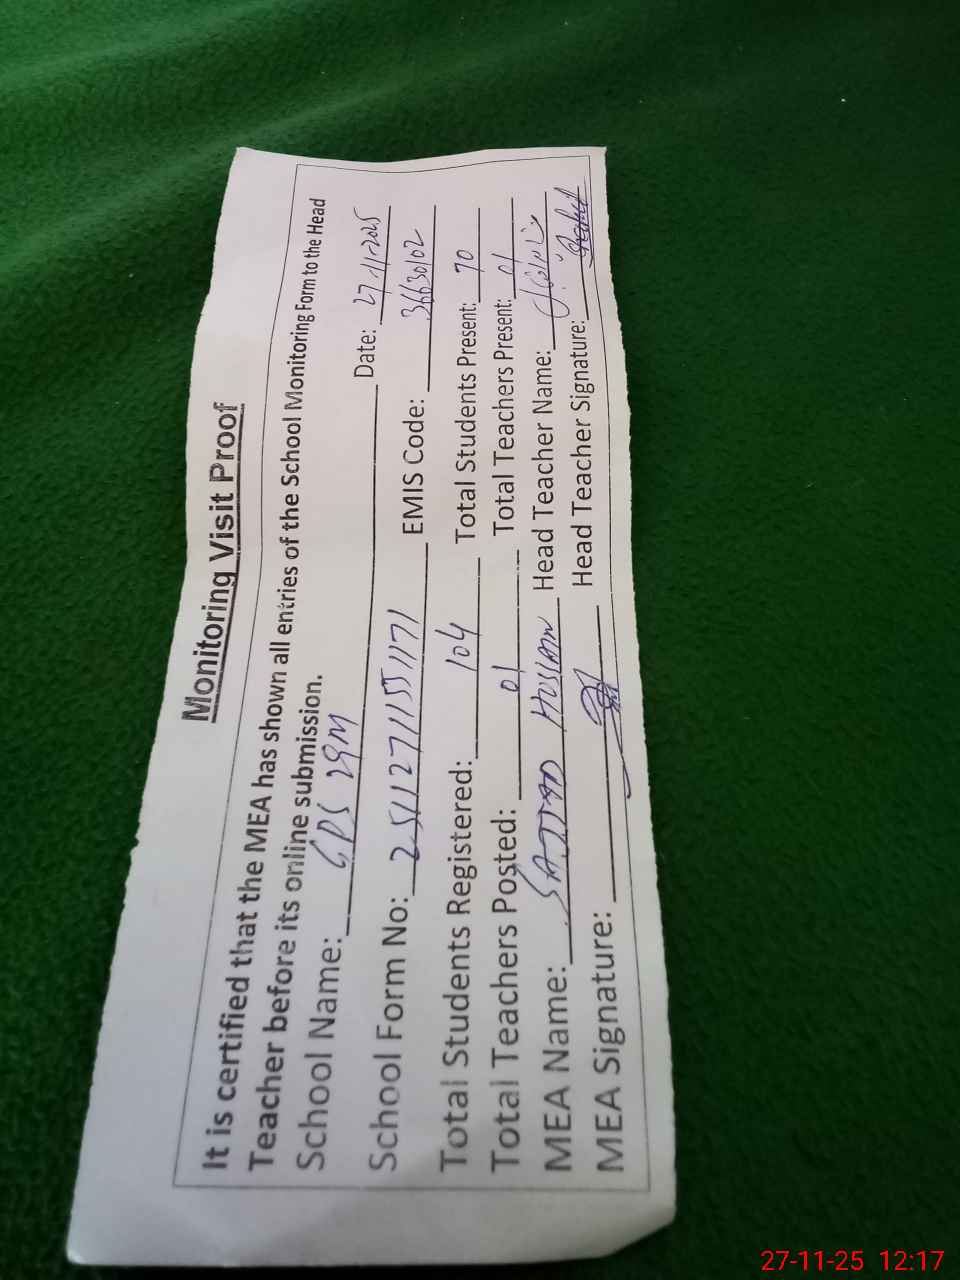 Monitoring Visit Proof
It is certified that the MEA has shown all entries of the School Monitoring Form to the Head
Teacher before its online submission.
School Name: GPS 29M Date: 27-11-2025
School Form No: 251127111551171 EMIS Code: 36630102
Total Students Registered: 104 Total Students Present: 70
Total Teachers Posted: 01 Total Teachers Present: 01
MEA Name: SAJJAD HUSSAIN Head Teacher Name:
MEA Signature: Head Teacher Signature:
27-11-25 12:17